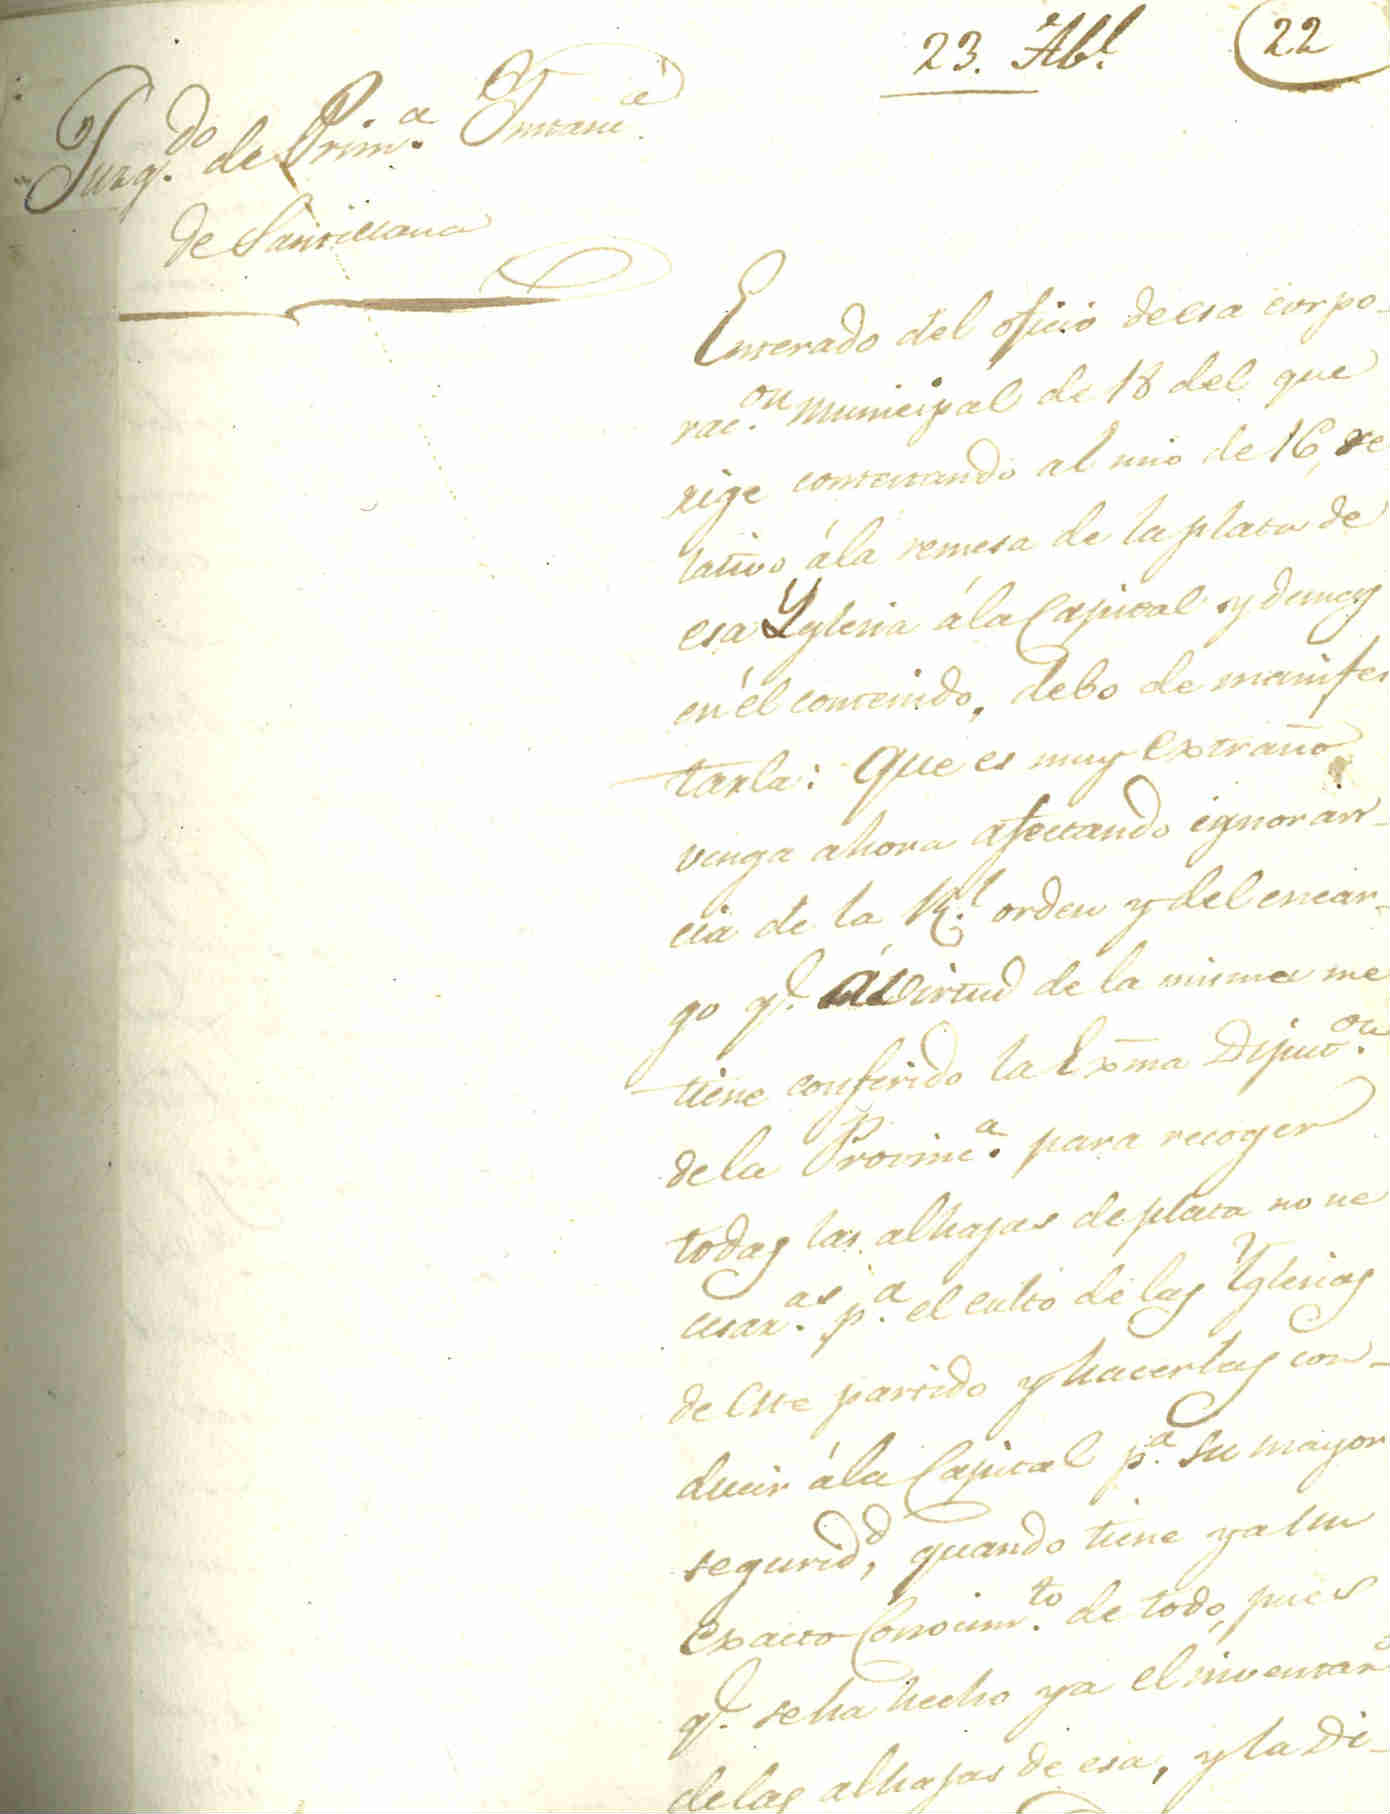 23. Ab.l
22
Juzg.do de Prim.a Instanc.a
de Santillana
Enterado del oficio de esa corpo-
rac.on municipal de 18 del que
rige contestando al mio de 16, re
lativo á la remesa de la plata de
esa Yglesia á la Capital y demas
en él contenido, debo de manifes
tarla: Que es muy extraño
venga ahora afectando ignoran-
cia de la R.l orden y del encar-
go q.e á virtud de la misma me
tiene conferido la Exma Diputac.on
de la Provinc.a para recoger
todas las alhajas de plata no ne
cesar.as p.a el culto de las Yglesias
de este partido y hacerlas con-
ducir á la Capital p.a su mayor
segurid.d, quando tiene ya un
exacto Conocim.to de todo, pues
q.e se ha hecho ya el inventar.o
de las alhajas de esa, y la Di-